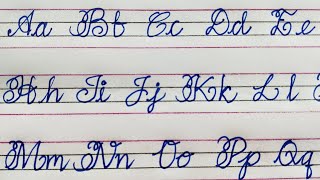 Aa Bb Cc Dd Ee
Hh Ii Jj Kk Ll
Mm Nn Oo Pp Qq